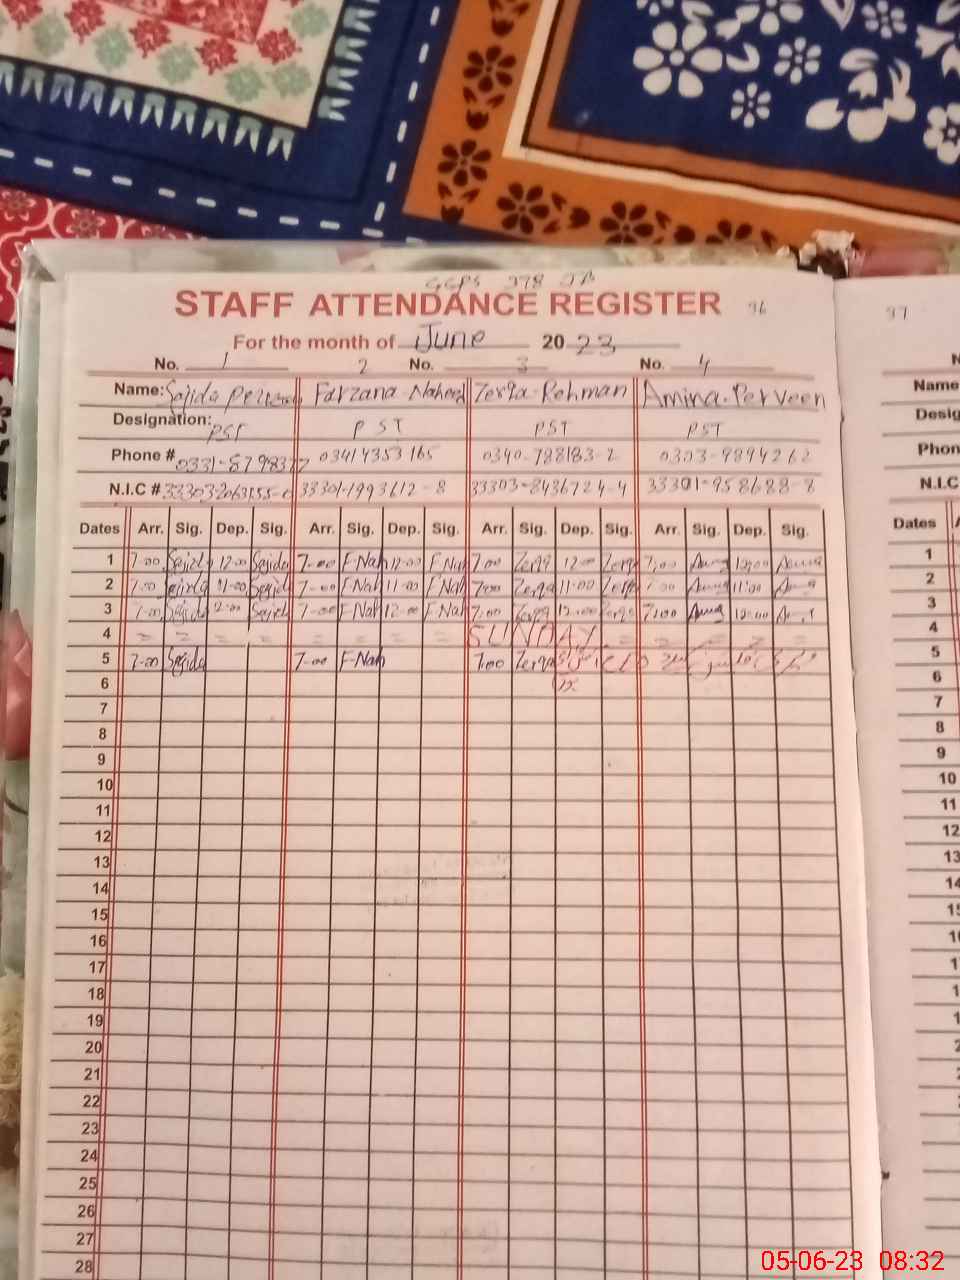 GGPS 378 JB
STAFF ATTENDANCE REGISTER 36
For the month of June 20 23
No. 1 2 No. 3 No. 4
Name: Sajida Farzana Naheed Zerqa Rehman Amina Perveen
Designation: PST PST PST PST
Phone # 03414353165 0340-788183-2 0303-9894262
N.I.C # 33301-1993612-8 33303-8436724-4 33301-958688-8
Dates Arr. Sig. Dep. Sig. Arr. Sig. Dep. Sig. Arr. Sig. Dep. Sig. Arr. Sig. Dep. Sig.
1 7-00 Sajida 12-00 Sajida 7-00 F-Nah 12-00 F-Nah 7:00 Zerqa 12-00 Zerqa 7:00 12:00
2 7-00 Sajida 11-00 Sajida 7-00 F-Nah 11-00 F-Nah 7:00 Zerqa 11:00 Zerqa 7:00 11:00
3 7-00 Sajida 12-00 Sajida 7-00 F-Nah 12-00 F-Nah 7:00 Zerqa 12:00 Zerqa 7:00 12:00
4 = = - = = = = = SUNDAY = = = = =
5 7-00 Sajida 7-00 F-Nah 7:00 Zerqa
6
7
8
9
10
11
12
13
14
15
16
17
18
19
20
21
22
23
24
25
26
27
28
37
N
Name
Desig
Phon
N.I.C
Dates A
1
2
3
4
5
6
7
8
9
10
11
12
13
14
05-06-23 08:32